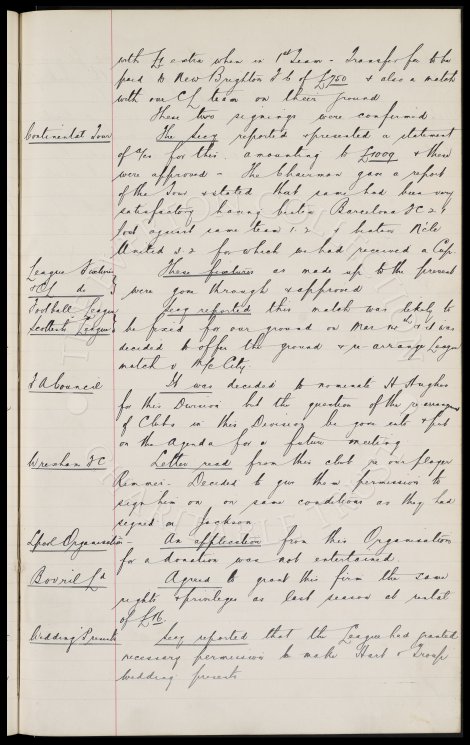 with £1 extra when in 1st Team - Transfer fee to be
paid to New Brighton F C of £750 & also a match
with our CL team on their ground
These two signings were confirmed.
Continental Tour The Secy reported & presented a statement
of a/cs for this amounting to £1009 & these
were approved - The Chairman gave a report
of the Tour & stated that same had been very
satisfactory having beaten Barcelona FC 2-1
lost against same team 1-2 & beaten
United 3-2 for which we had received a Cup.
League Fixtures These fixtures as made up to the present
& CL do were gone through & approved
Football League Secy reported this match was likely to
Scottish League be fixed for our ground on Mar & it was
decided to offer the ground & re-arrange League
match v M/c City.
F A Council It was decided to nominate H Hughes
for this Division but the question of the re-arrangement
of Clubs in this Division be gone into & put
on the Agenda for a future meeting
Wrexham FC Letter read from this club re our player
Rimmer. Decided to give them permission to
sign him on on same conditions as they had
signed on Jackson
Lpool Organisation - An application from this Organisation
for a donation was not entertained.
Bovril Ld Agreed to grant this firm the same
rights & privileges as last season at rental
of £16.
Wedding Presents Secy reported that the League had granted
necessary permission to make Hart & Troup
wedding presents